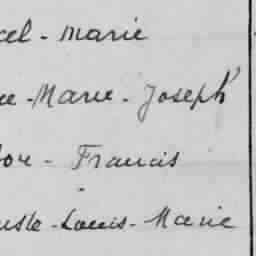 cel - Marie
ee - Marie - Joseph
tor - Francis
uste - Louis - Marie